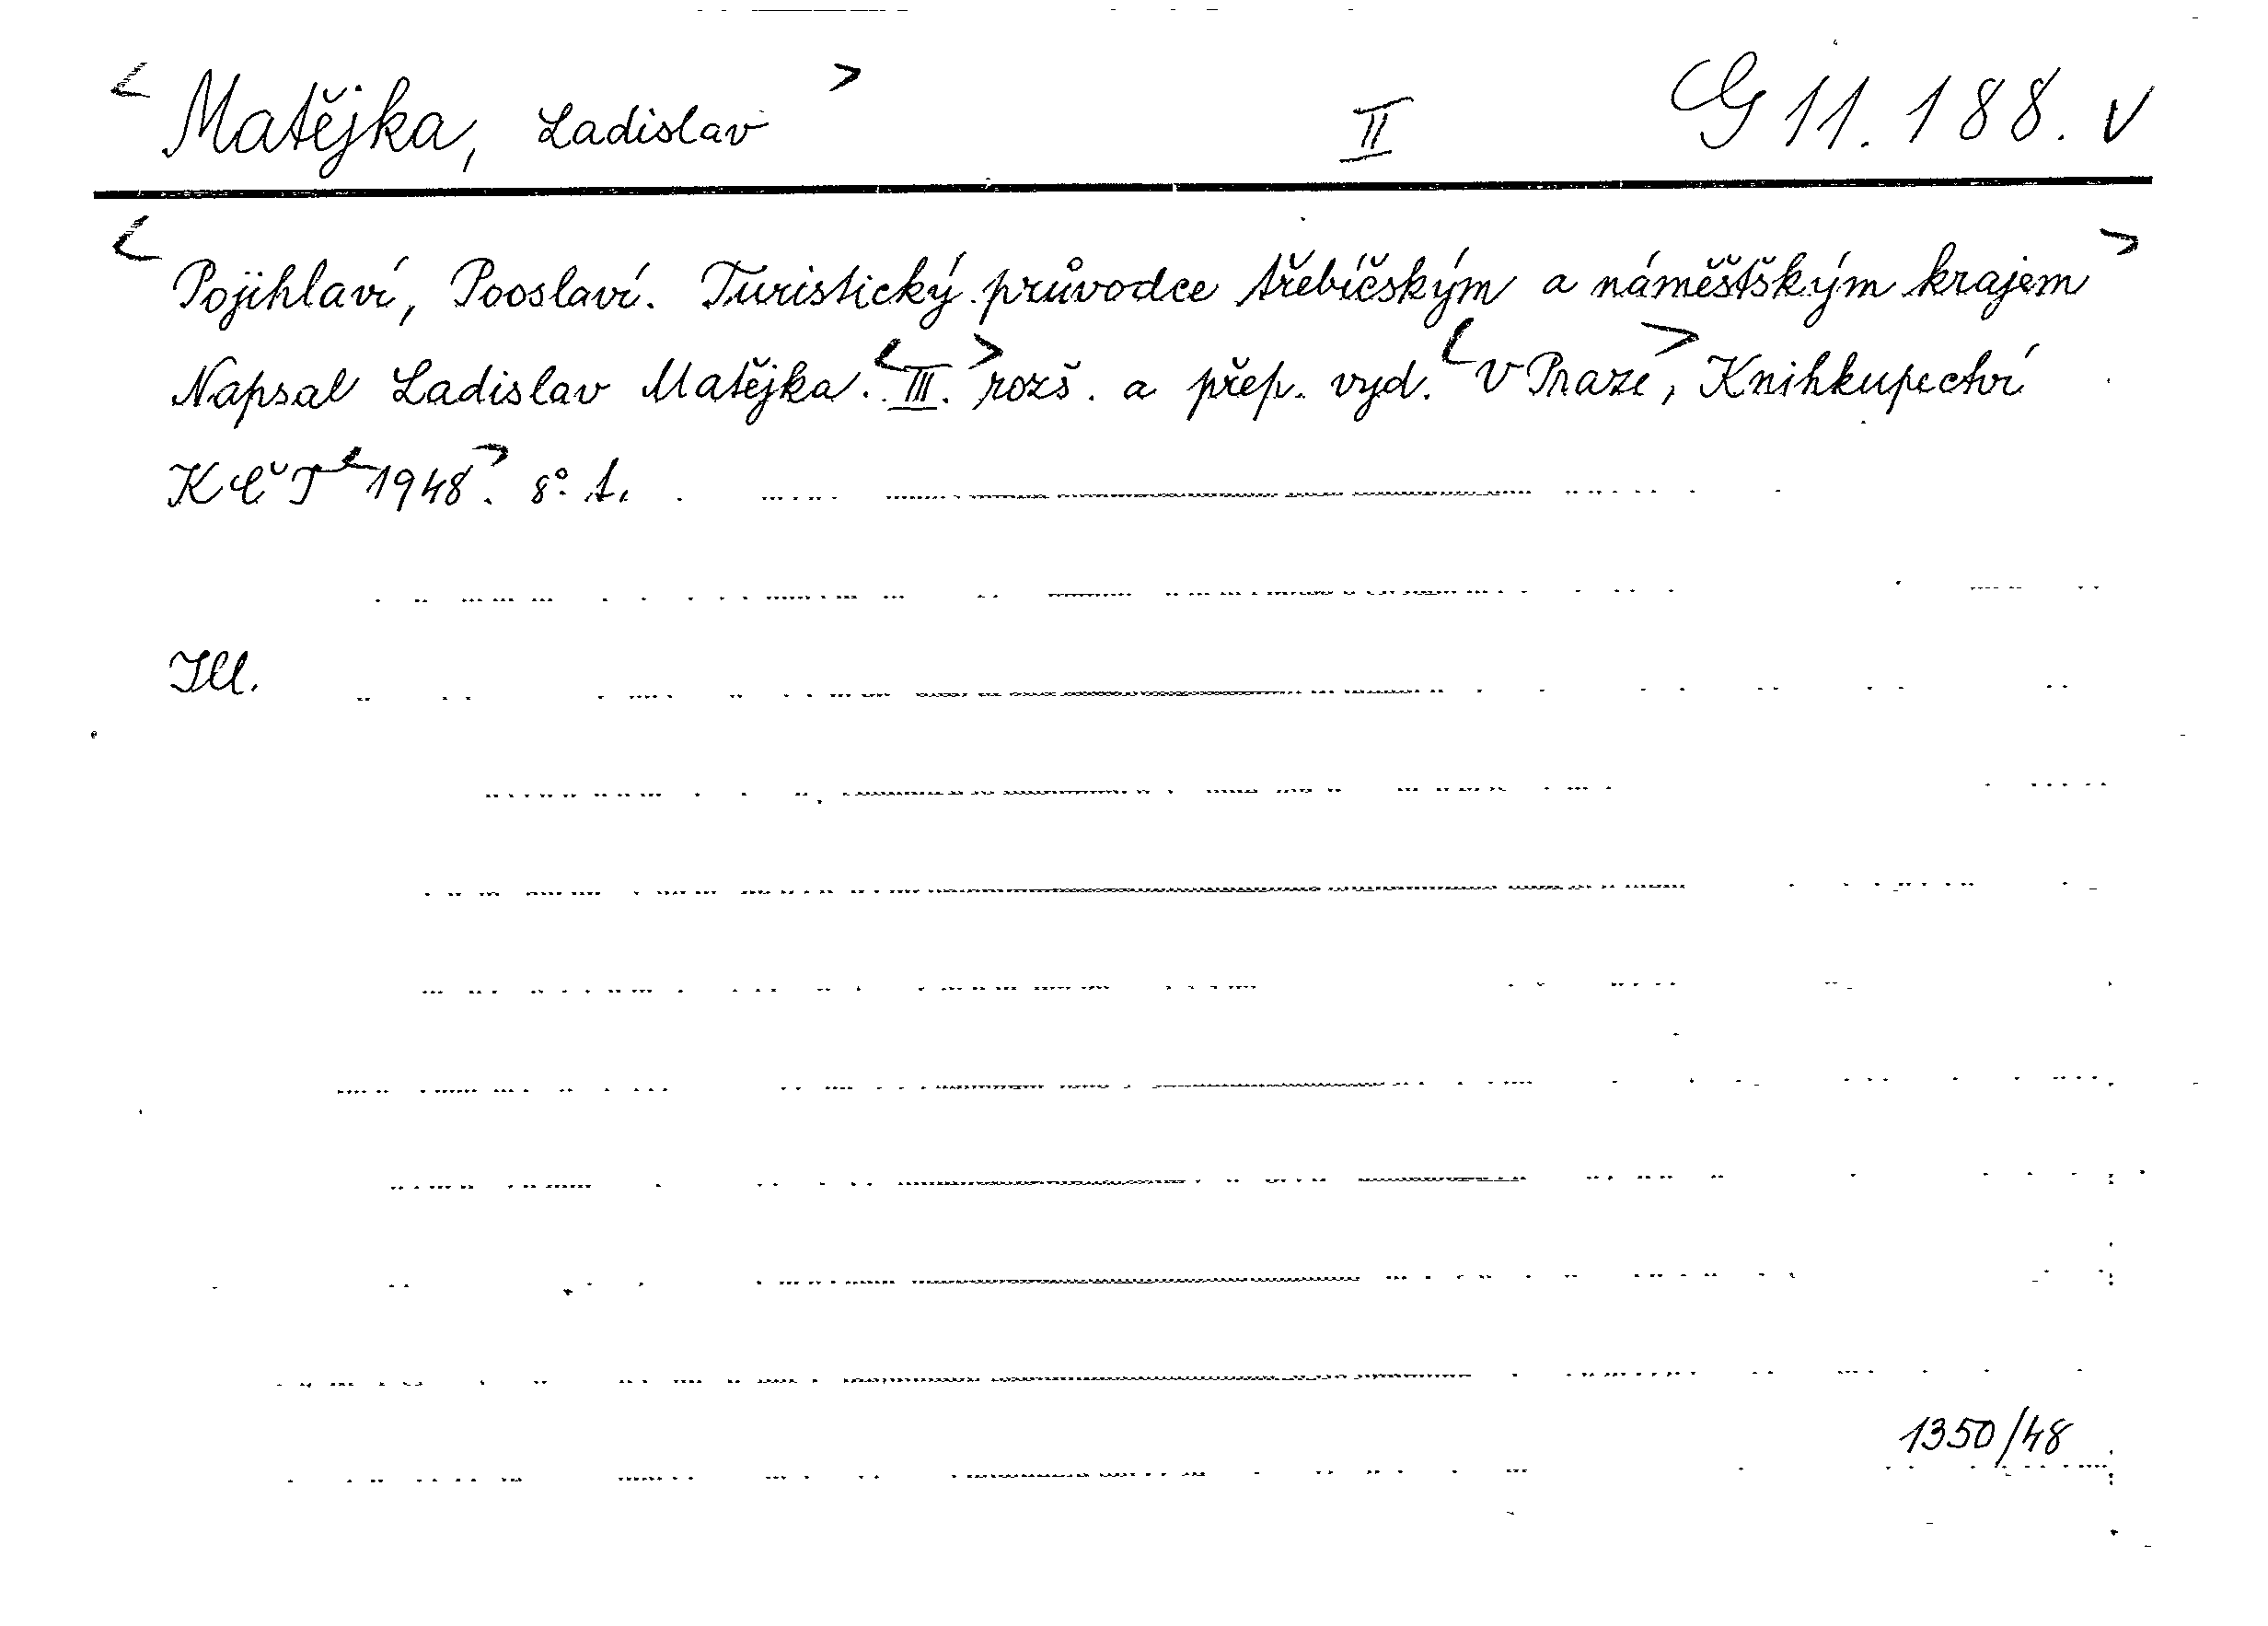 < Matějka, Ladislav > II G 11.188. v
< Pojihlaví, Pooslaví. Turistický průvodce třebíčským a náměštským krajem >
Napsal Ladislav Matějka. < III. > rozš. a přep. vyd. < V Praze >, Knihkupectví
KČT < 1948 >. 8°. t.
Ill.
1350/48